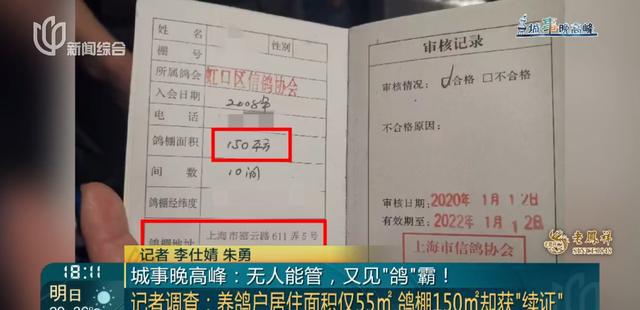 新闻综合
城事晚高峰
姓名
性别
棚号
所属鸽会 虹口区信鸽协会
入会日期 2008年
电话
鸽棚面积 150平方
间数 10间
鸽棚经纬度
鸽棚地址 上海市密云路611弄5号
审核记录
审核情况: 合格 不合格
不合格原因:
审核日期: 2020年1月12日
有效期至: 2022年1月12日
上海市信鸽协会
老鳳祥
SINCE1848
记者 李仕婧 朱勇
18:11
城事晚高峰：无人能管，又见"鸽"霸！
明日
记者调查：养鸽户居住面积仅55㎡ 鸽棚150㎡却获"续证"